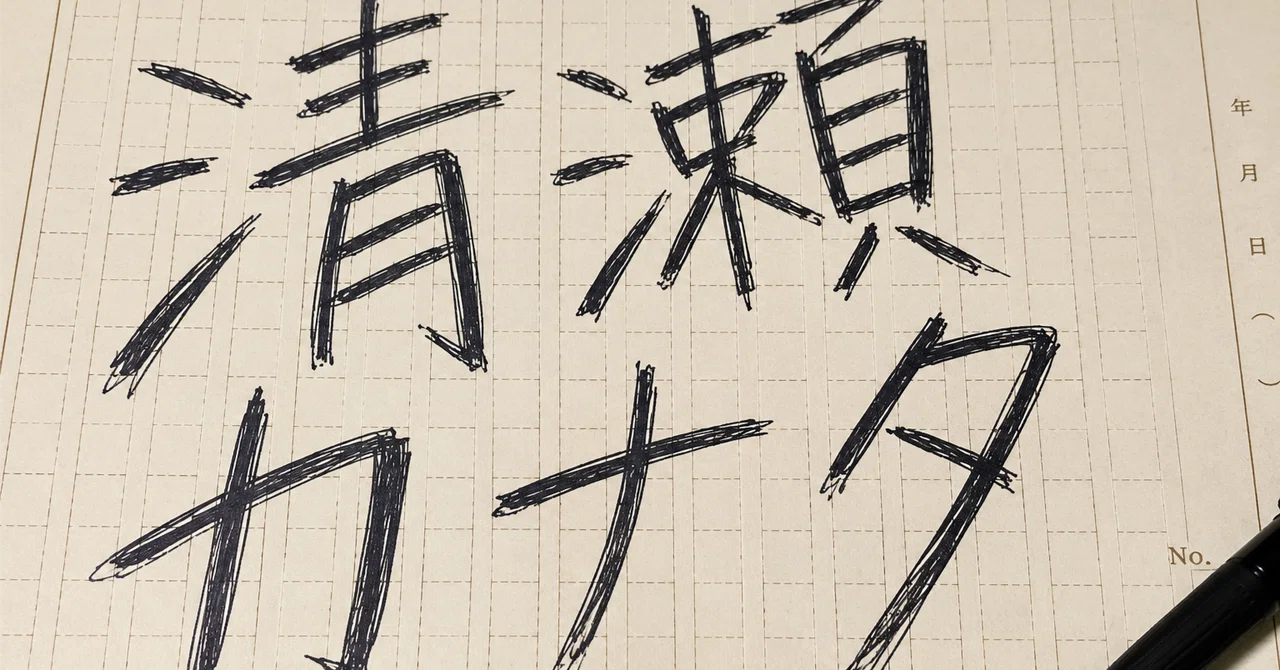 清瀬
カナタ
年
月
日
（
）
No.